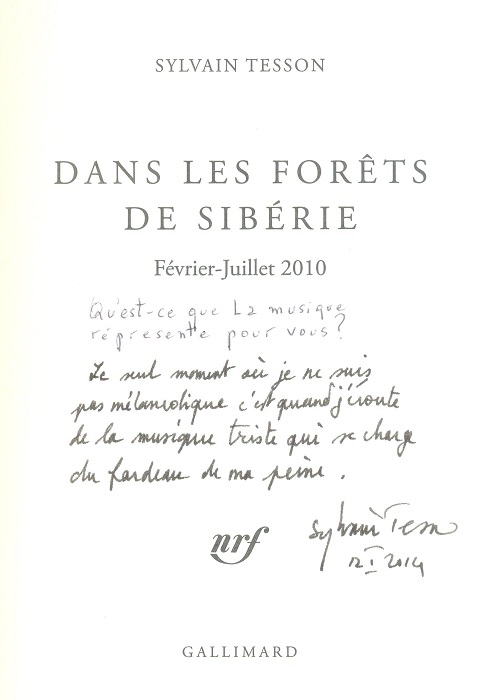 SYLVAIN TESSON
DANS LES FORÊTS
DE SIBÉRIE
Février-Juillet 2010
Qu'est-ce que La musique
représente pour vous?
Le seul moment où je ne suis
pas mélancolique c'est quand j'écoute
de la musique triste qui se charge
du fardeau de ma peine.
nrf
Sylvain Tesson
12 I 2014
GALLIMARD